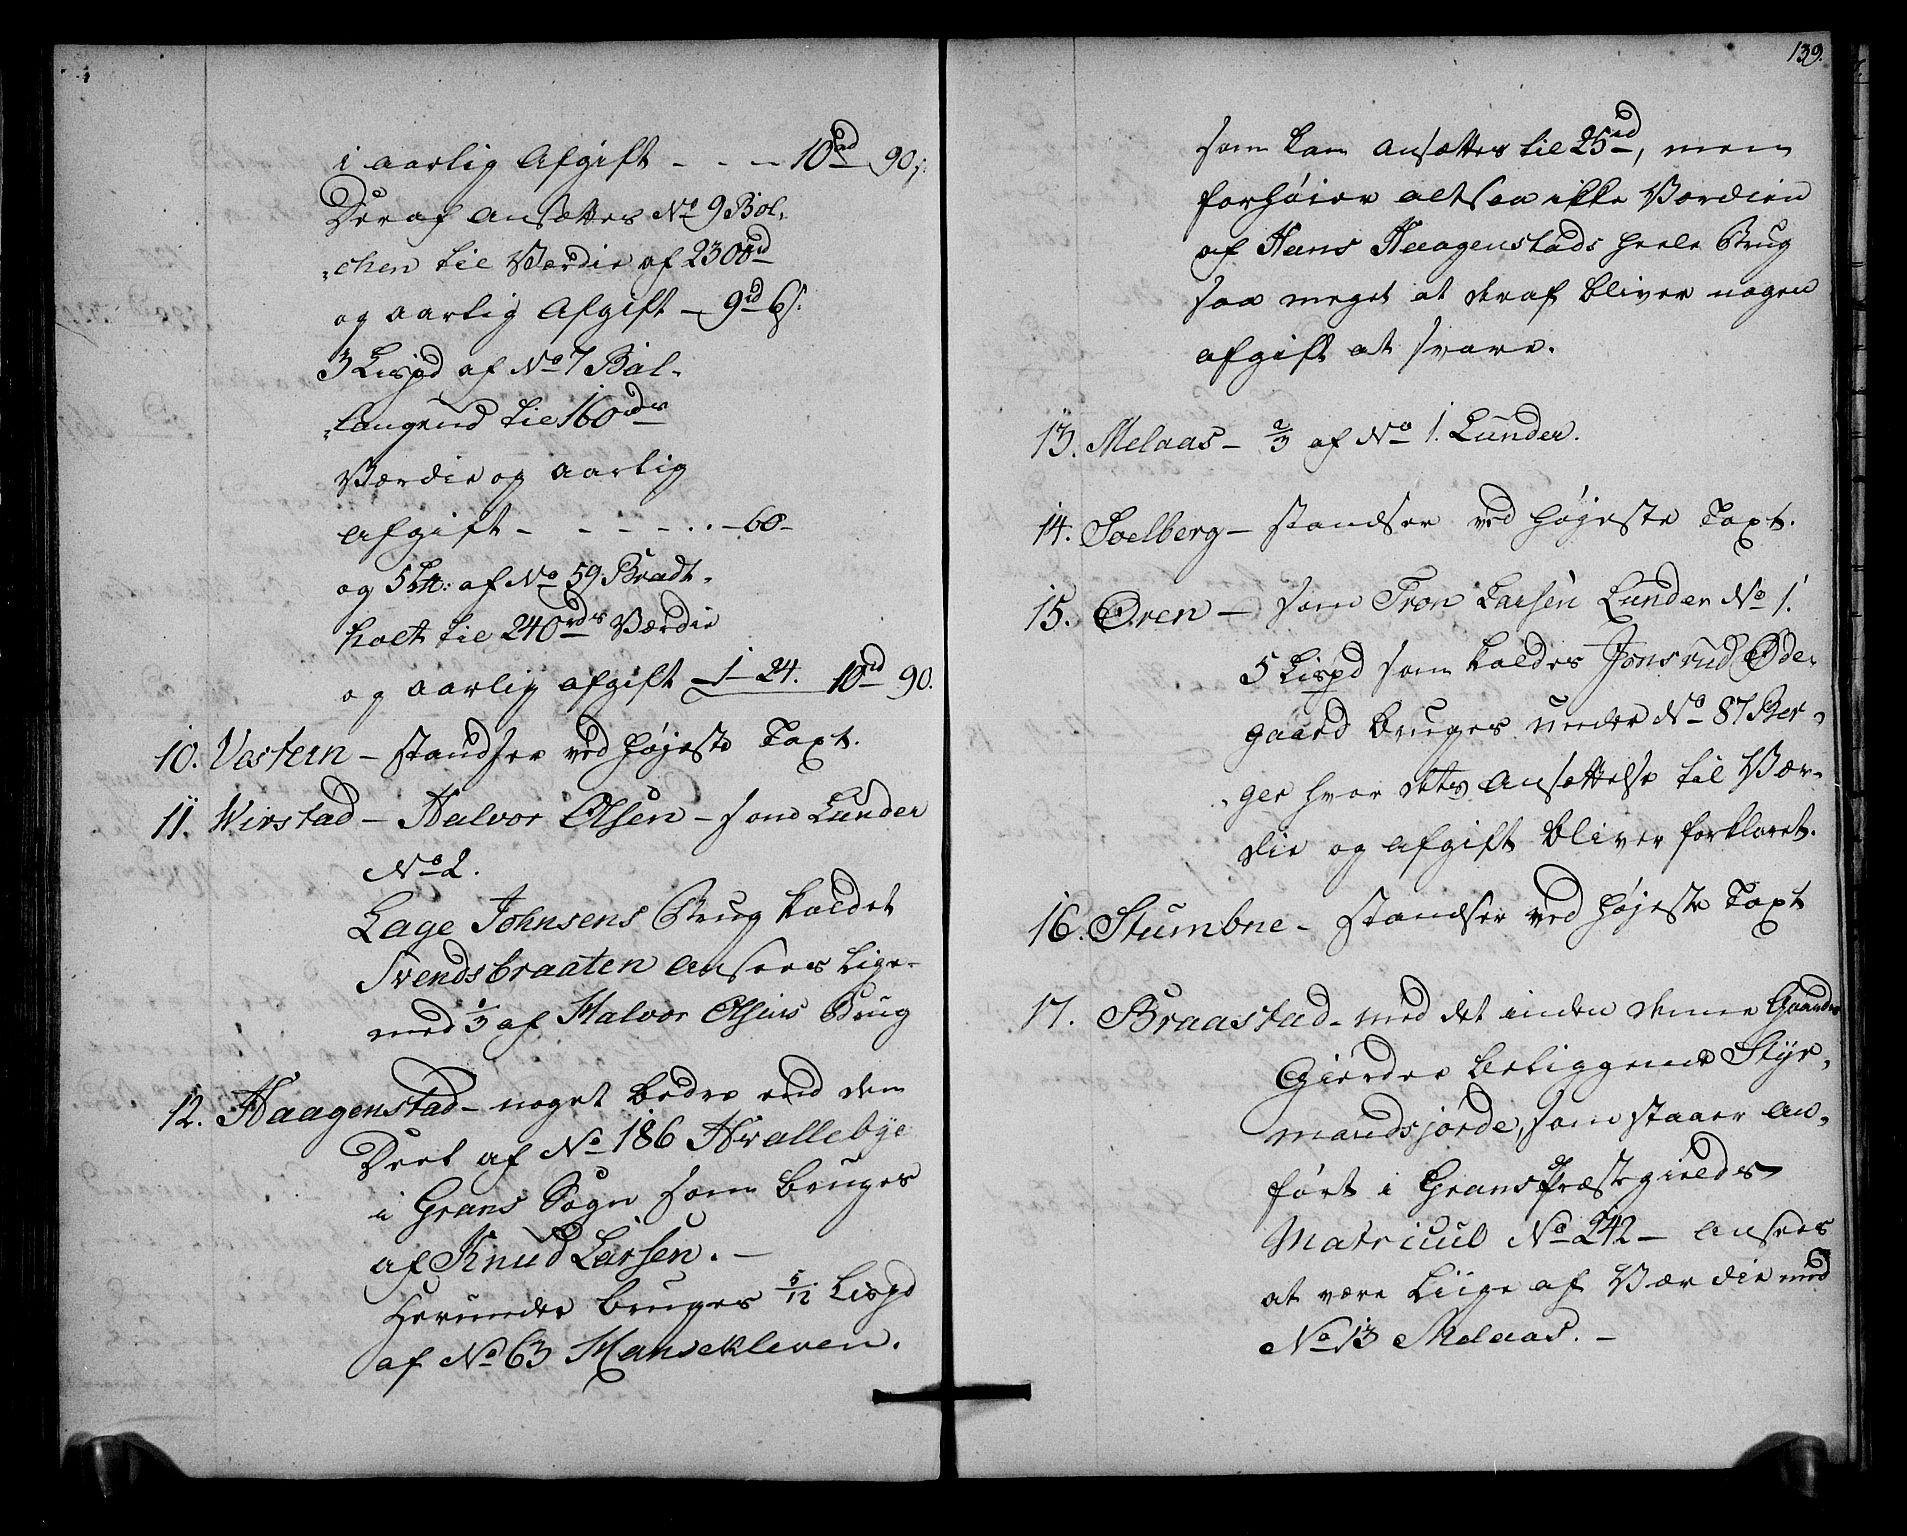 i aarlig Afgift - - - 10rd 90ſ:
Deraf ansættes No 9 Böl,
„chen til Værdie af 2300rd
og aarlig Afgift - 9rd 6ſ:
3 Lispd af No 7 Bal-
„langrud til 160rds
Værdie og aarlig
Afgift - - - - - . . -60-
og 5 L℔: af No 59 Bradt-
holt til 240rds Værdie
og aarlig afgift 1- 24. 10rd 90.
10. Vestern - standser ved højeste Taxt.
11. Wirstad - Halvor Olsen - som Lunder
No 2.
Lage Johnsens Brug kaldet
Svendsbraaten ansees lige-
med 1/3 af Halvor Olsens Brug
12. Haagenstad - noget bedre end den
Deel af No 186 Hvallebye
i Grans Sogn som bruges
af Knud Larsen. -
Herunder bruges 5/12 Lispd
af No 63 Hanekleven.
139.
som kan ansættes til 25rd, men
forhøier altsaa ikke Værdien
af Hans Haagenstads heele Brug
saa meget at deraf bliver nogen
afgift at svare.
13. Melaas - 2/3 af No 1. Lunder.
14. Soelberg - standser ved højeste Taxt.
15. Øren - som Tron Larsen Lunder No 1.
5 Lispd som kaldes Jonsrud Øde-
gaard bruges under No 87 Ber-
„ger hvor dets Ansættelse til Vær-
die og Afgift bliver forklaret.
16. Stumbne - standser ved højeste Taxt
17. Braastad - med det inden denne Gaards
Gierder beliggende Styr,
mandsjorde, som staaer an,
ført i Grans Præstegields
Matricul No 242 - ansees
at være Liige af Værdie med
No 13 Melaas. -